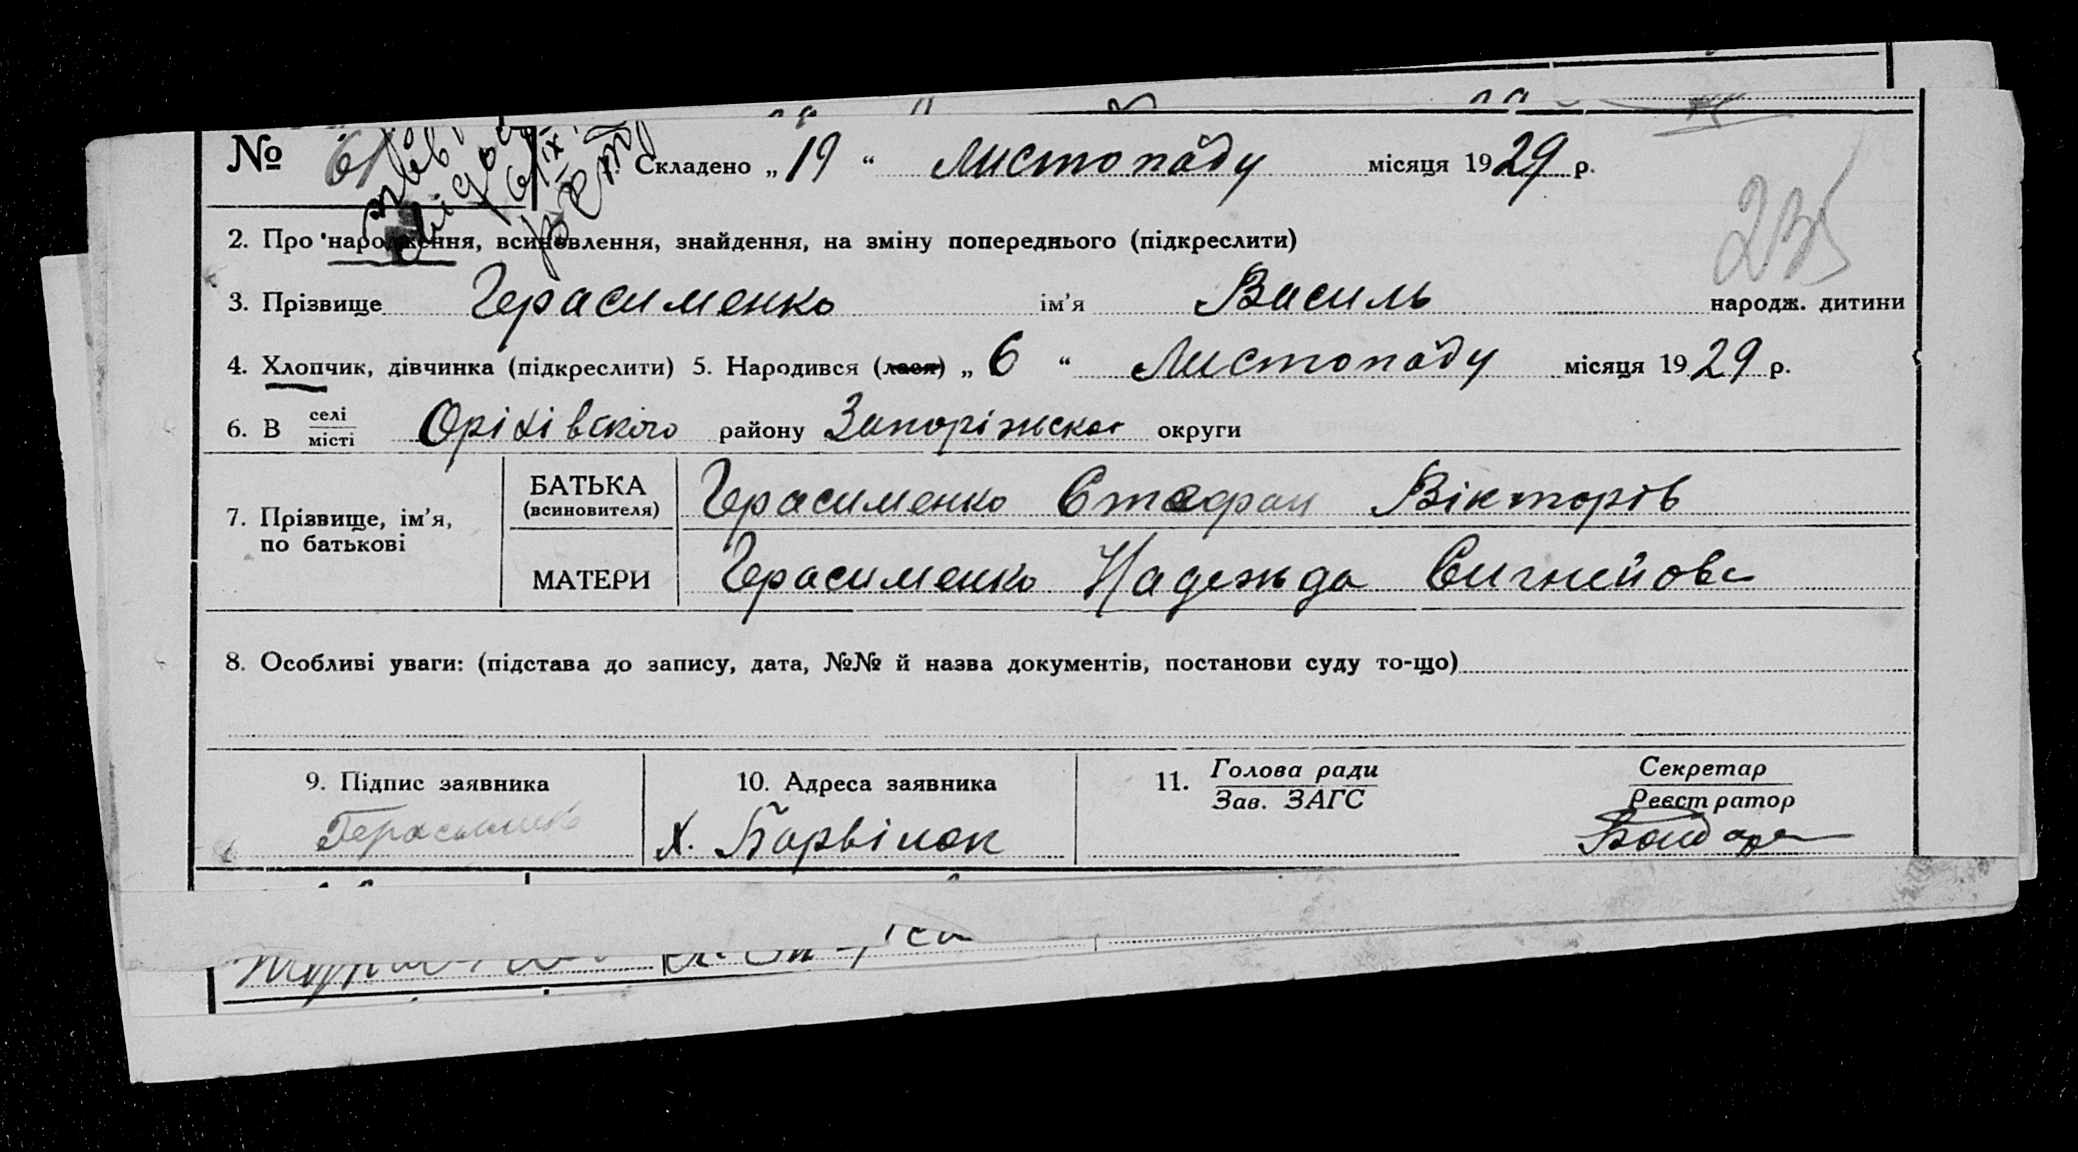 № 61 Складено „19“ листопаду місяця 1929 р.
235
2. Про народження, всиновлення, знайдення, на зміну попереднього (підкреслити)
3. Прізвище Герасименко ім’я Василь народж. дитини
4. Хлопчик, дівчинка (підкреслити) 5. Народився (лася) „6“ Листопаду місяця 1929 р.
6. В селі місті Оріхівского району Запоріжскої округи
7. Прізвище, ім’я, по батькові
БАТЬКА (всиновителя) Герасименко Стефан Вікторів
МАТЕРИ Герасименко Надежда
8. Особливі уваги: (підстава до запису, дата, №№ й назва документів, постанови суду то-що)
9. Підпис заявника 10. Адреса заявника 11. Голова ради Зав. ЗАГС Секретар Реєстратор
Герасименко х. Барвінок